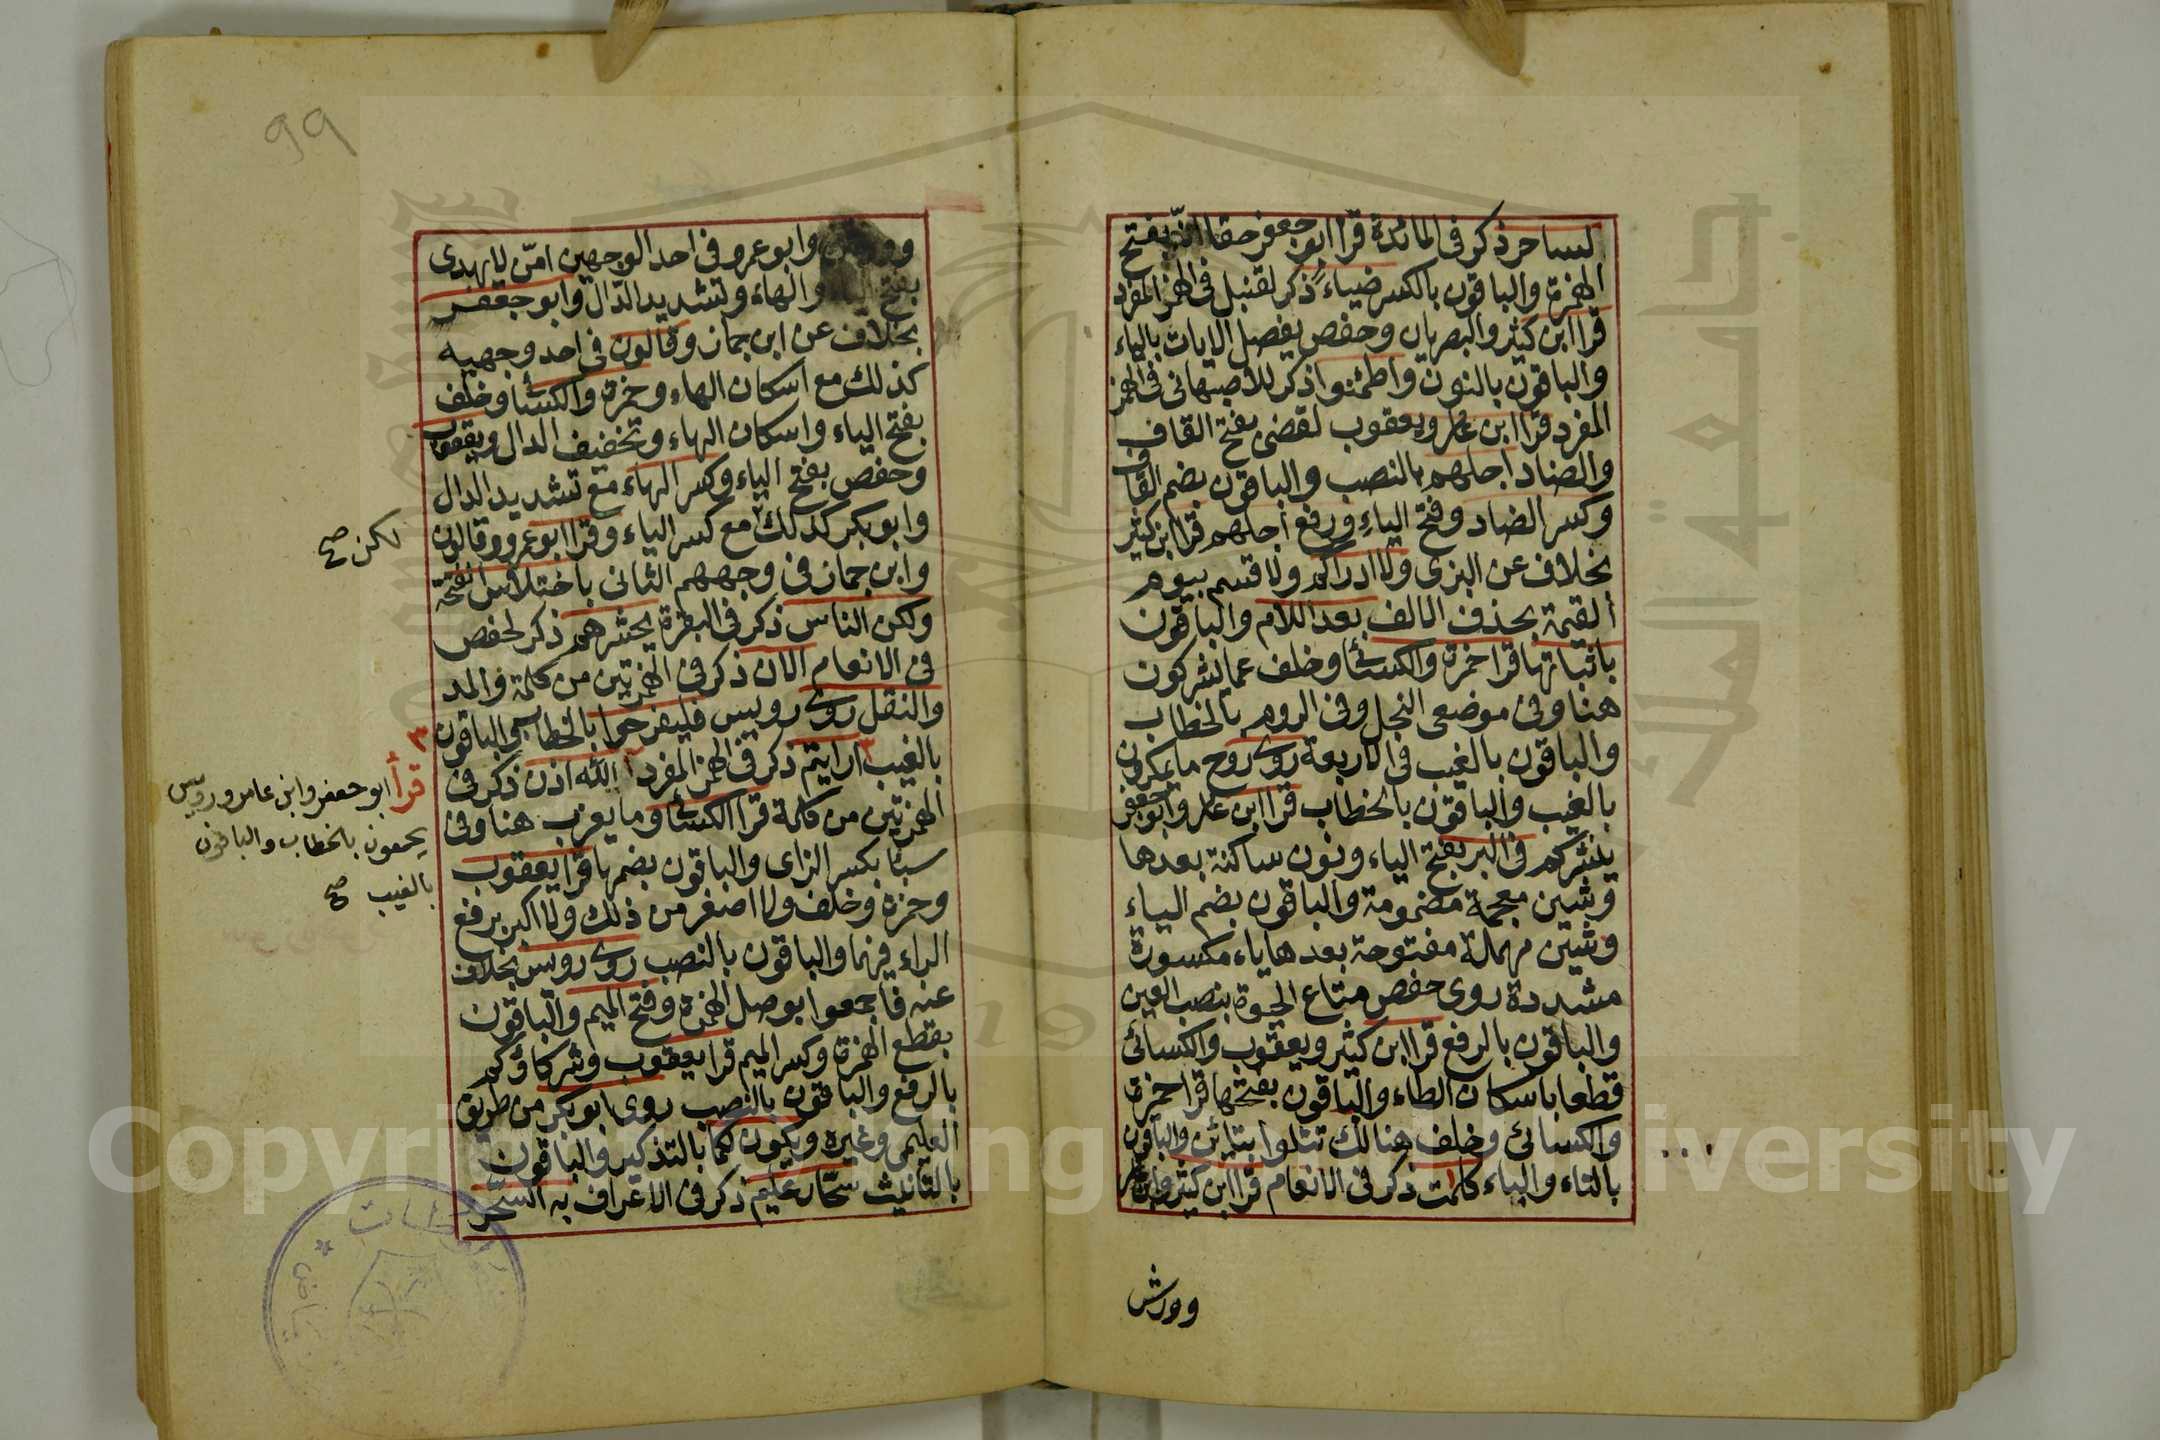 لساحر ذكر فى المائدة قرا ابو جعفر حقا انه بفتح
الهمزة والباقون بالكسر ضياء ذكر لقنبل فى الهمز المفرد
قرا ابن كثير والبصريان وحفص يفصل الايات بالياء
والباقون بالنون واطمئنوا ذكر للاصبهانى فى الهمز
المفرد قرا ابن عامر ويعقوب لقضى بفتح القاف
والضاد اجلهم بالنصب والباقون بضم القاف
وكسر الضاد وفتح الياء ورفع اجلهم قرا ابن كثير
بخلاف عن البزى ولا ادراكم ولا اقسم بيوم
القيمة بحذف الالف بعد اللام والباقون
باثباتها قرا حمزة والكسائى وخلف عما تشركون
هنا وفى موضعى النحل وفى الروم بالخطاب
والباقون بالغيب فى الاربعة روى روح ما يمكرون
بالغيب والباقون بالخطاب قرا ابن عامر وابو جعفر
ينشركم فى البر بفتح الياء ونون ساكنة بعدها
وشين معجمة مضمومة والباقون بضم الياء
وشين مهملة مفتوحة بعدها ياء مكسورة
مشددة روى حفص متاع الحيوة بنصب العين
والباقون بالرفع قرا ابن كثير ويعقوب والكسائى
قطعا باسكان الطاء والباقون بفتحها قرا حمزة
والكسائى وخلف هنالك تتلوا بتائين والباقون
بالتاء والباء كلمت ذكر فى الانعام قرا ابن كثير وابن عامر
وورش
99
وورش وابو عمرو فى احد الوجهين امن لا يهدى
بفتح الياء والهاء وتشديد الدال وابو جعفر
بخلاف عن ابن جماز وقالون فى احد وجهيه
كذلك مع اسكان الهاء وحمزة والكسائى وخلف
بفتح الياء واسكان الهاء وتخفيف الدال ويعقوب
وحفص بفتح الياء وكسر الهاء مع تشديد الدال
وابو بكر كذلك مع كسر الياء وقرا ابو عمرو وقالون
وابن جماز فى وجههم الثانى باختلاس فتحة
ولكن الناس ذكر فى البقرة يحشرهم ذكر لحفص
فى الانعام الان ذكر فى الهمزتين من كلمة والمد
والنقل روى رويس فليفرحوا بالخطاب والباقون
بالغيب ارايتم ذكر فى الهمز المفرد آلله اذن ذكر فى
الهمزتين من كلمة قرا الكسائى وما يعزب هنا وفى
سبأ بكسر الزاى والباقون بضمها قرا يعقوب
وحمزة وخلف ولا اصغر من ذلك ولا اكبر برفع
الراء فيهما والباقون بالنصب روى رويس بخلاف
عنه فاجمعوا بوصل الهمزة وفتح الميم والباقون
بقطع الهمزة وكسر الميم قرا يعقوب وشركاؤكم
بالرفع والباقون بالنصب روى ابو بكر من طريق
العليمى وغيره ويكون لكما بالتذكير والباقون
بالتانيث سحار عليم ذكر فى الاعراف به السحر
لكن صح
٣
قرأ ابو جعفر وابن عامر ورويس
يجمعون بالخطاب والباقون
بالغيب صح
Copyright King University